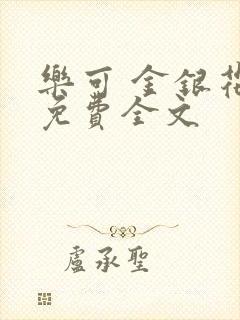 樂可 金銀花
免費全文
盧承聖